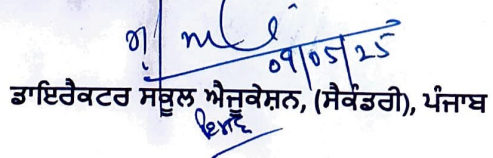 09/05/25
ਡਾਇਰੈਕਟਰ ਸਕੂਲ ਐਜੂਕੇਸ਼ਨ, (ਸੈਕੰਡਰੀ), ਪੰਜਾਬ